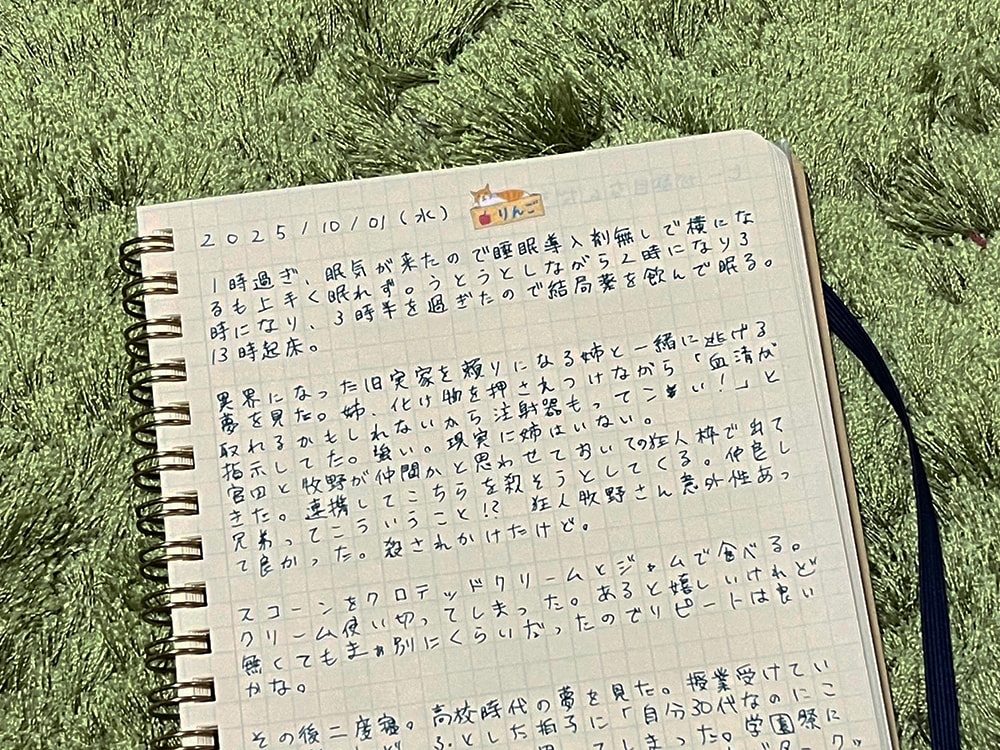 2025/10/01(水)
りんご
1時過ぎ、眠気が来たので睡眠導入剤無しで横にな
るも上手く眠れず。うとうとしながら2時になり3
時になり、3時半を過ぎたので結局薬を飲んで眠る。
13時起床。
異界になった旧実家を頼りになる姉と一緒に逃げる
夢を見た。姉、化け物を押さえつけながら「血清が
取れるかもしれないから注射器もってこい!」と
指示してた。強い。現実に姉はいない。
宮田と牧野が仲間かと思わせておいての狂人枠で出て
きた。連携してこちらを殺そうとしてくる。仲良し
兄弟ってこういうこと!? 狂人牧野さん意外性あっ
て良かった。殺されかけたけど。
スコーンをクロテッドクリームとジャムで食べる。
クリーム使い切ってしまった。あると嬉しいけれど
無くてもまぁ別にくらいだったのでリピートは良い
かな。
その後二度寝。高校時代の夢を見た。授業受けてい
るとした拍子に「自分30代なのにこ
てしまった。学園祭に